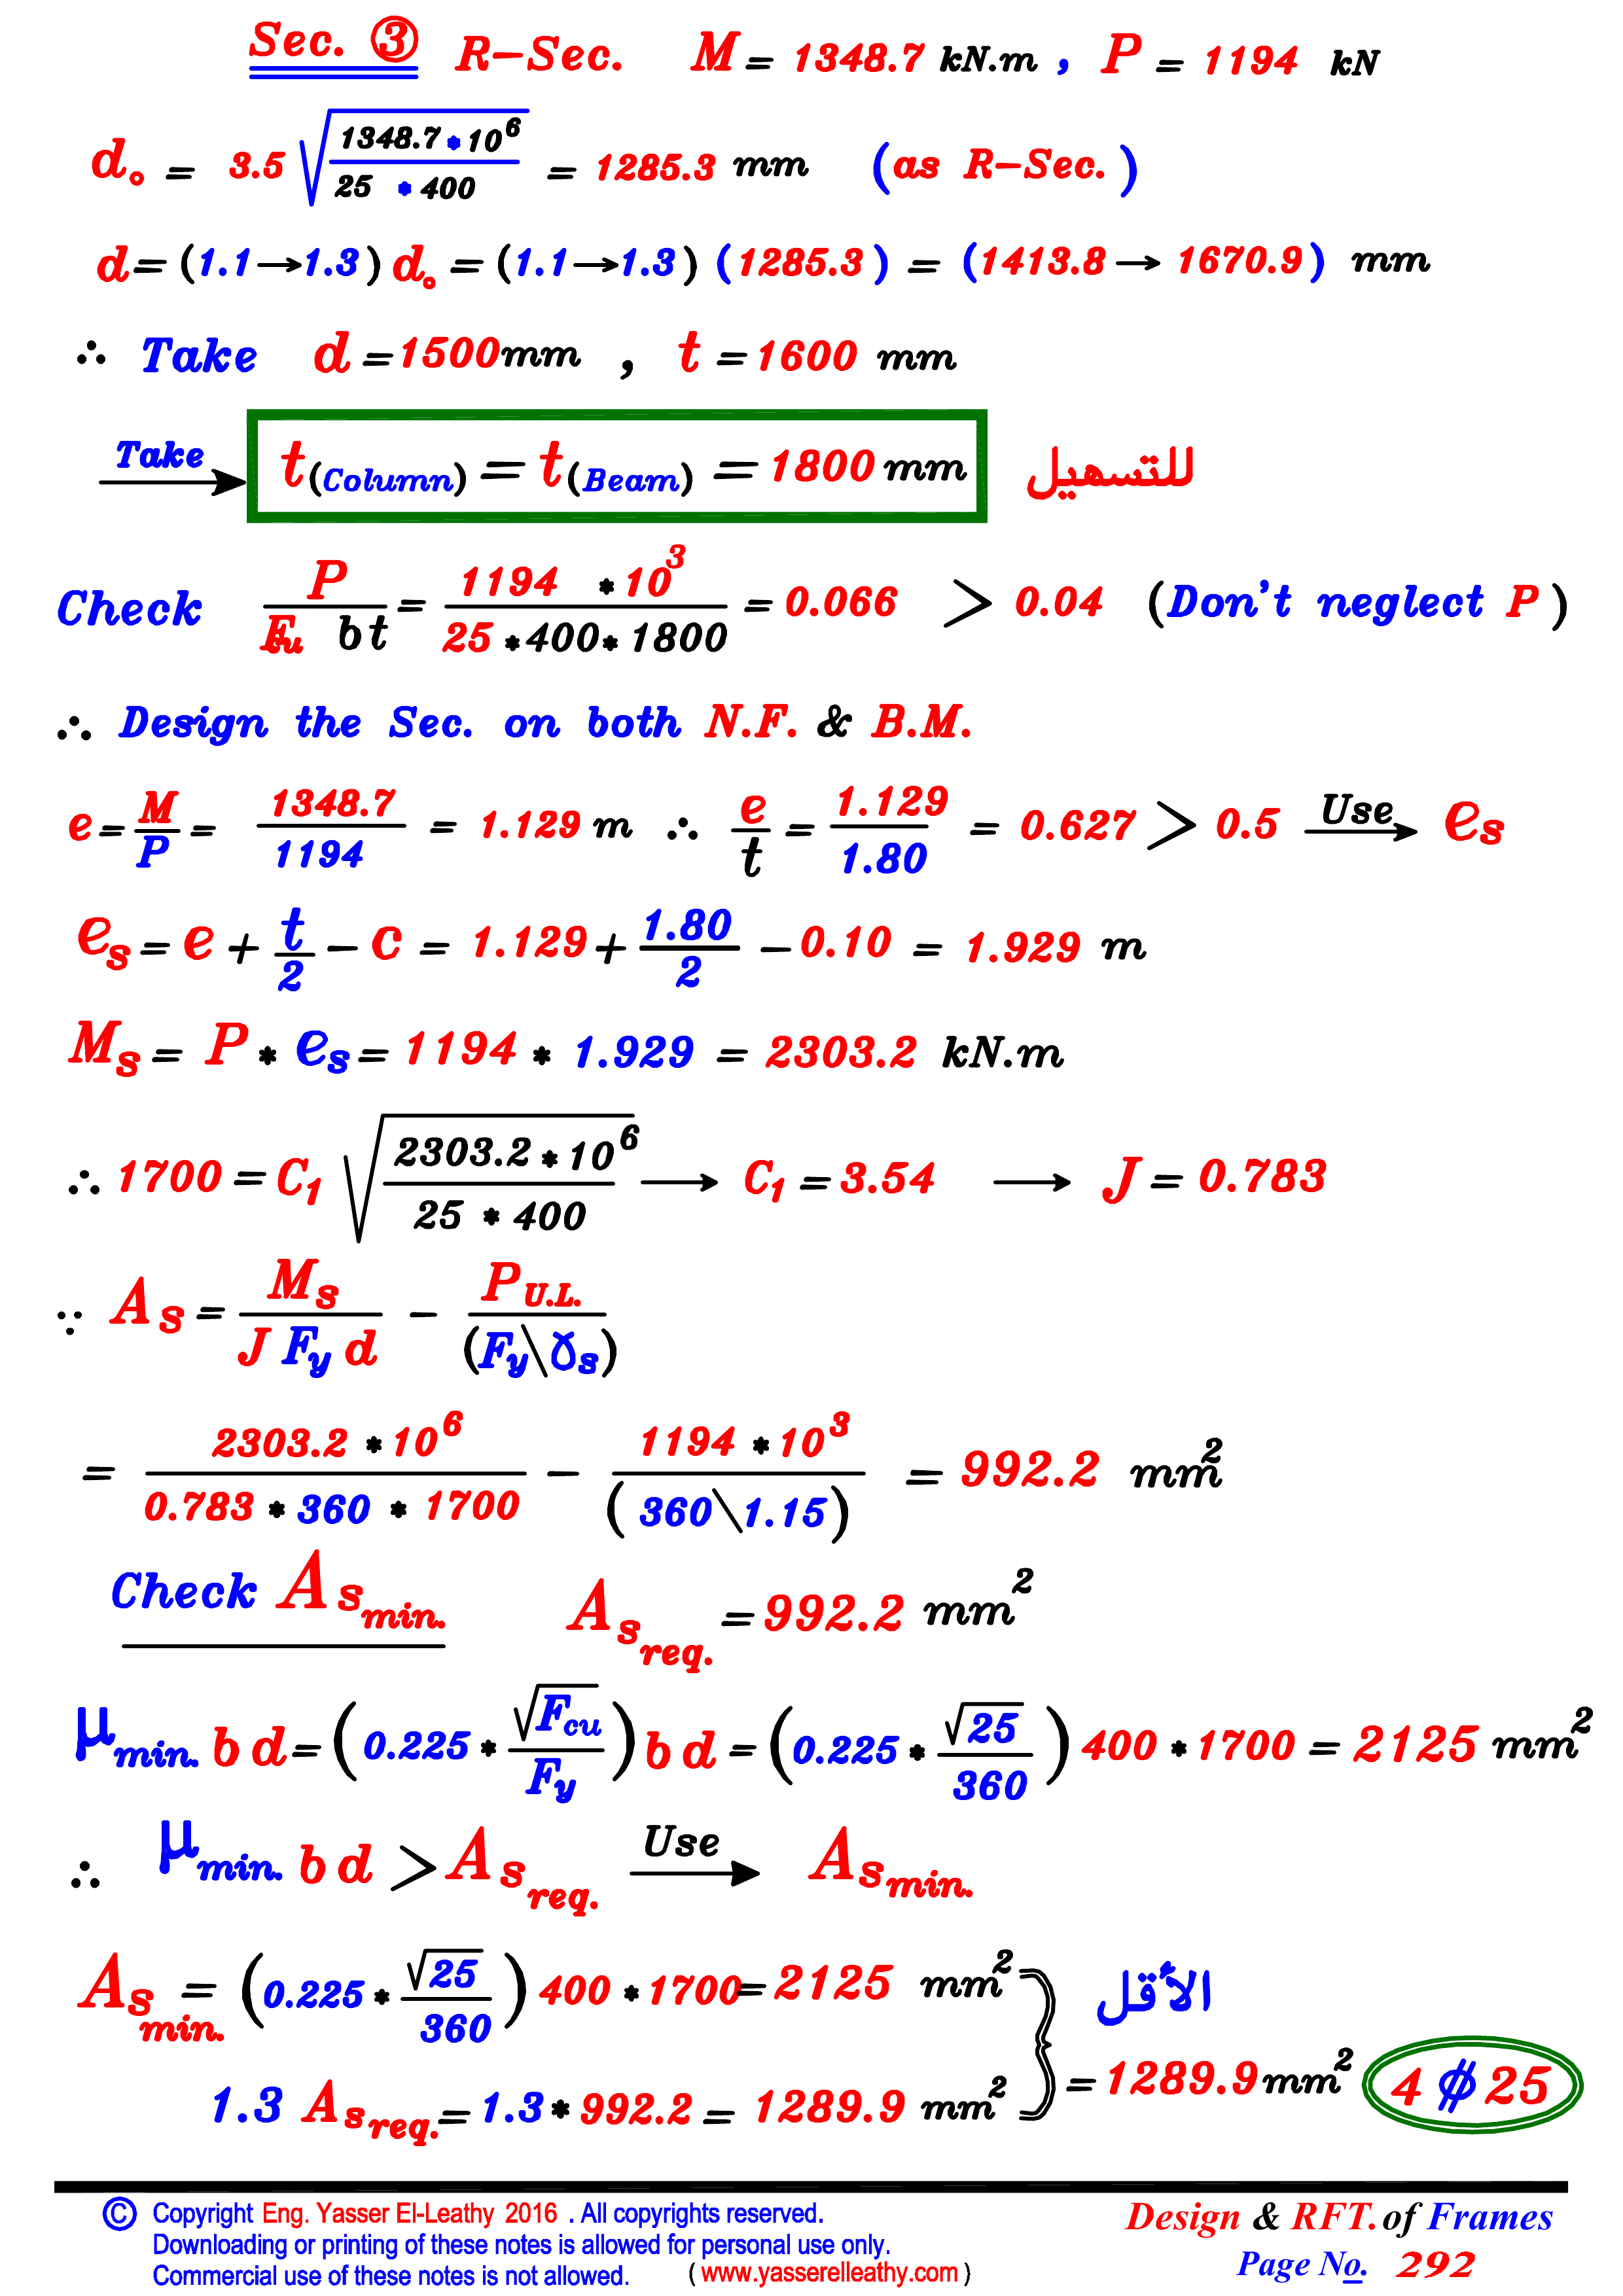 Sec. ③ R-Sec. M = 1348.7 kN.m , P = 1194 kN
d₀ = 3.5 √(1348.7 * 10⁶ / 25 * 400) = 1285.3 mm (as R-Sec.)
d = (1.1→1.3) d₀ = (1.1→1.3) (1285.3) = (1413.8 → 1670.9) mm
∴ Take d = 1500 mm , t = 1600 mm
Take → t(Column) = t(Beam) = 1800 mm للتسهيل
Check P / Fcu b t = 1194 * 10³ / 25 * 400 * 1800 = 0.066 > 0.04 (Don't neglect P)
∴ Design the Sec. on both N.F. & B.M.
e = M / P = 1348.7 / 1194 = 1.129 m ∴ e / t = 1.129 / 1.80 = 0.627 > 0.5 Use → es
es = e + t / 2 - c = 1.129 + 1.80 / 2 - 0.10 = 1.929 m
Ms = P * es = 1194 * 1.929 = 2303.2 kN.m
∴ 1700 = C₁ √(2303.2 * 10⁶ / 25 * 400) → C₁ = 3.54 → J = 0.783
∵ As = Ms / J Fy d - P U.L. / (Fy \ γs)
= 2303.2 * 10⁶ / 0.783 * 360 * 1700 - 1194 * 10³ / (360 \ 1.15) = 992.2 mm²
Check As min. As req. = 992.2 mm²
μ min. b d = (0.225 * √Fcu / Fy) b d = (0.225 * √25 / 360) 400 * 1700 = 2125 mm²
∴ μ min. b d > As req. Use → As min.
As min. = (0.225 * √25 / 360) 400 * 1700 = 2125 mm² الأقل
1.3 As req. = 1.3 * 992.2 = 1289.9 mm² } = 1289.9 mm² 4 ⌀ 25
© Copyright Eng. Yasser El-Leathy 2016 . All copyrights reserved.
Downloading or printing of these notes is allowed for personal use only.
Commercial use of these notes is not allowed. ( www.yasserelleathy.com )
Design & RFT. of Frames
Page No. 292